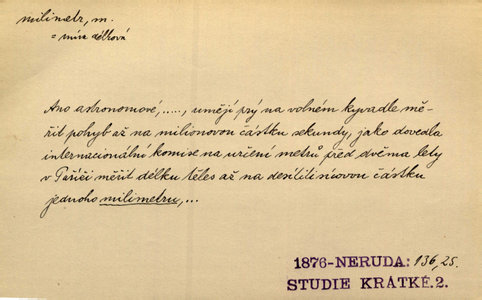 milimetr, m.
= míra délková
Ano astronomové,....., umějí prý na volném kyvadle mě-
řit pohyb až na milionovou částku sekundy, jako dovedla
internacionální komise na určení metrů před dvěma lety
v Paříži měřit délku těles až na desítitisícovou částku
jednoho milimetru,...
1876-NERUDA: 136,25.
STUDIE KRÁTKÉ.2.